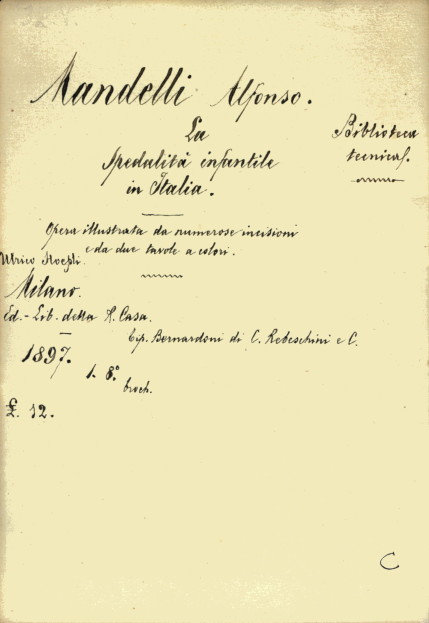 Mandelli Alfonso.
La
Spedalità infantile
in Italia.
Biblioteca
tecnica.
Opera illustrata da numerose incisioni
e da due tavole a colori.
Ulrico Hoepli.
Milano.
Ed.-Lib. della R. Casa.
Tip. Bernardoni di C. Rebeschini e C.
1897.
1. 8.°
broch.
£. 12.
C